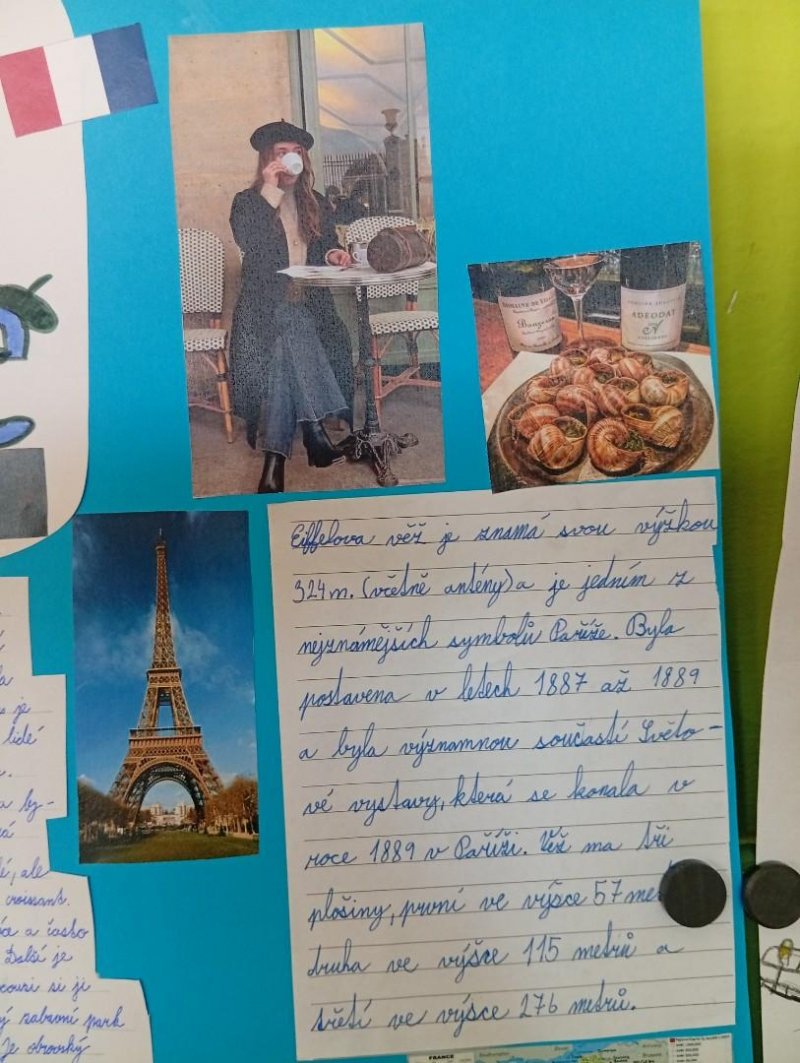 DOMAINE DE VILLAINE
Bouzeron
ADEODAT
A
Eiffelova věž je znamá svou výžkou
324 m. (včetně antény) a je jedním z
nejznámějších symbolů Paříže. Byla
postavena v letech 1887 až 1889
a byla významnou součastí Světo-
vé vystavy, která se konala v
roce 1889 v Paříži. Věž ma tři
plošiny, první ve výšce 57 me
druha ve výšce 115 metrů a
třetí ve výsce 276 metrů.
je
lidé
a by-
é, ale
croissant.
a často
Další je
si ji
zabavní park
Je obrovský
FRANCE